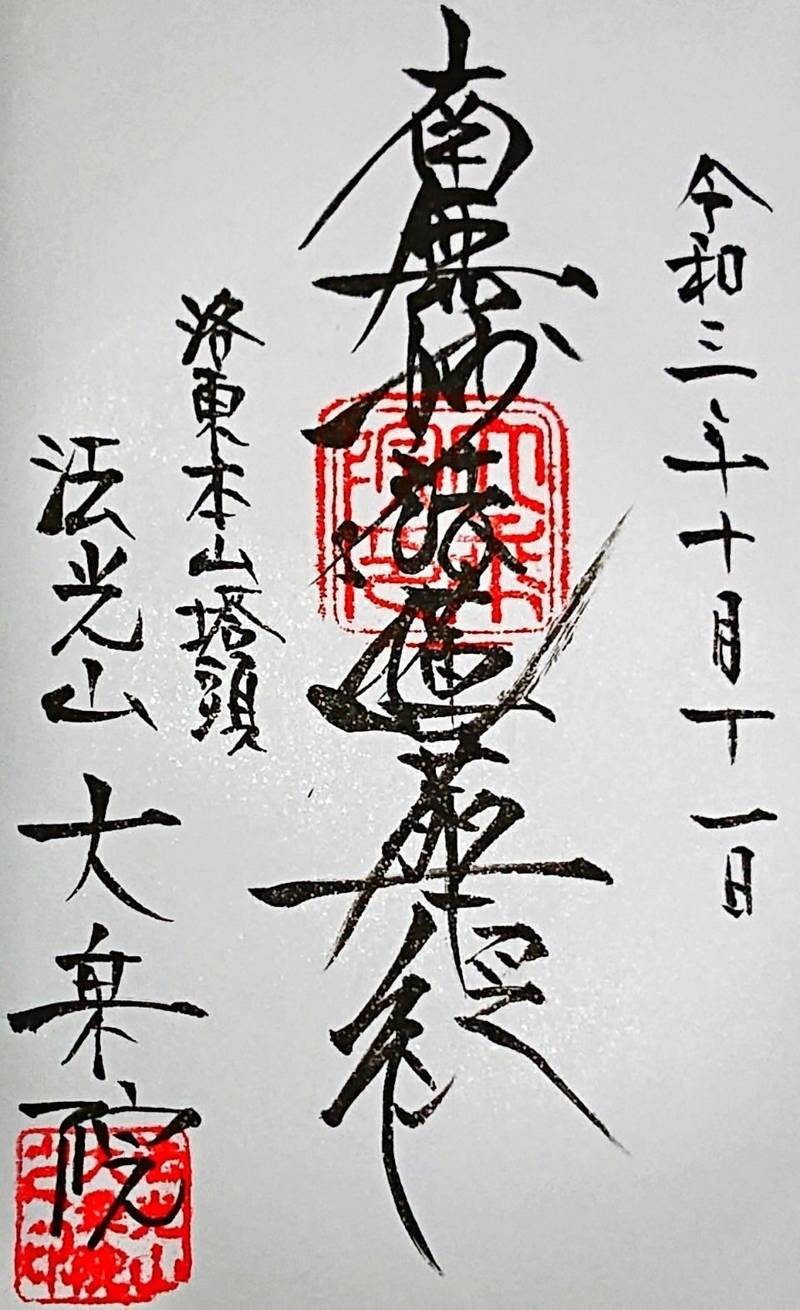 令和三年十月十一日
南無妙法蓮華経
洛東本山塔頭
法光山 大乗院